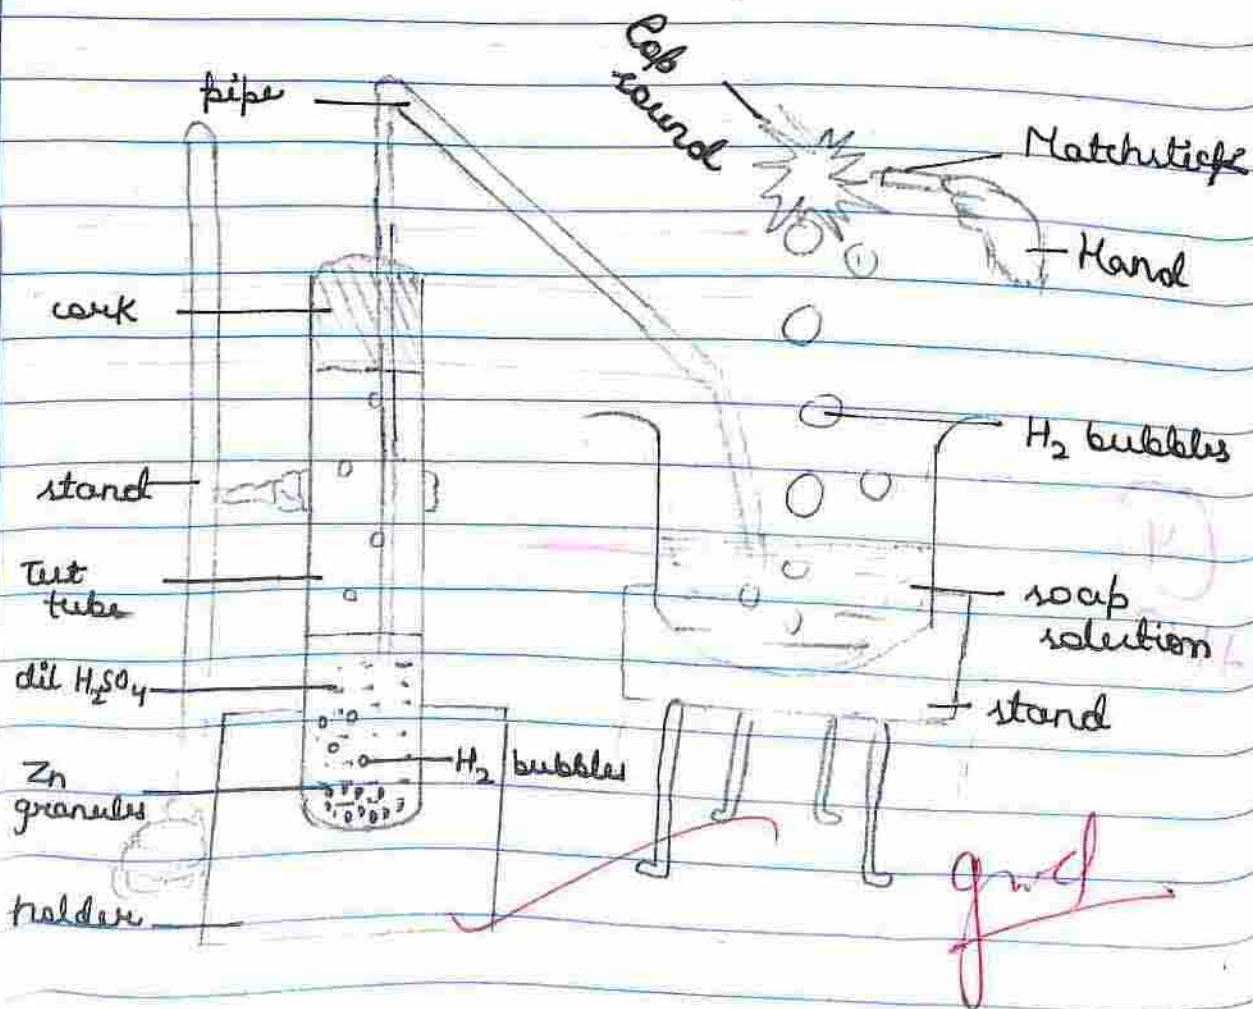 pipe
Pop
sound
Matchstick
Hand
cork
H₂ bubbles
stand
Test
tube
soap
solution
dil H₂SO₄
stand
H₂ bubbles
Zn
granules
holder
good